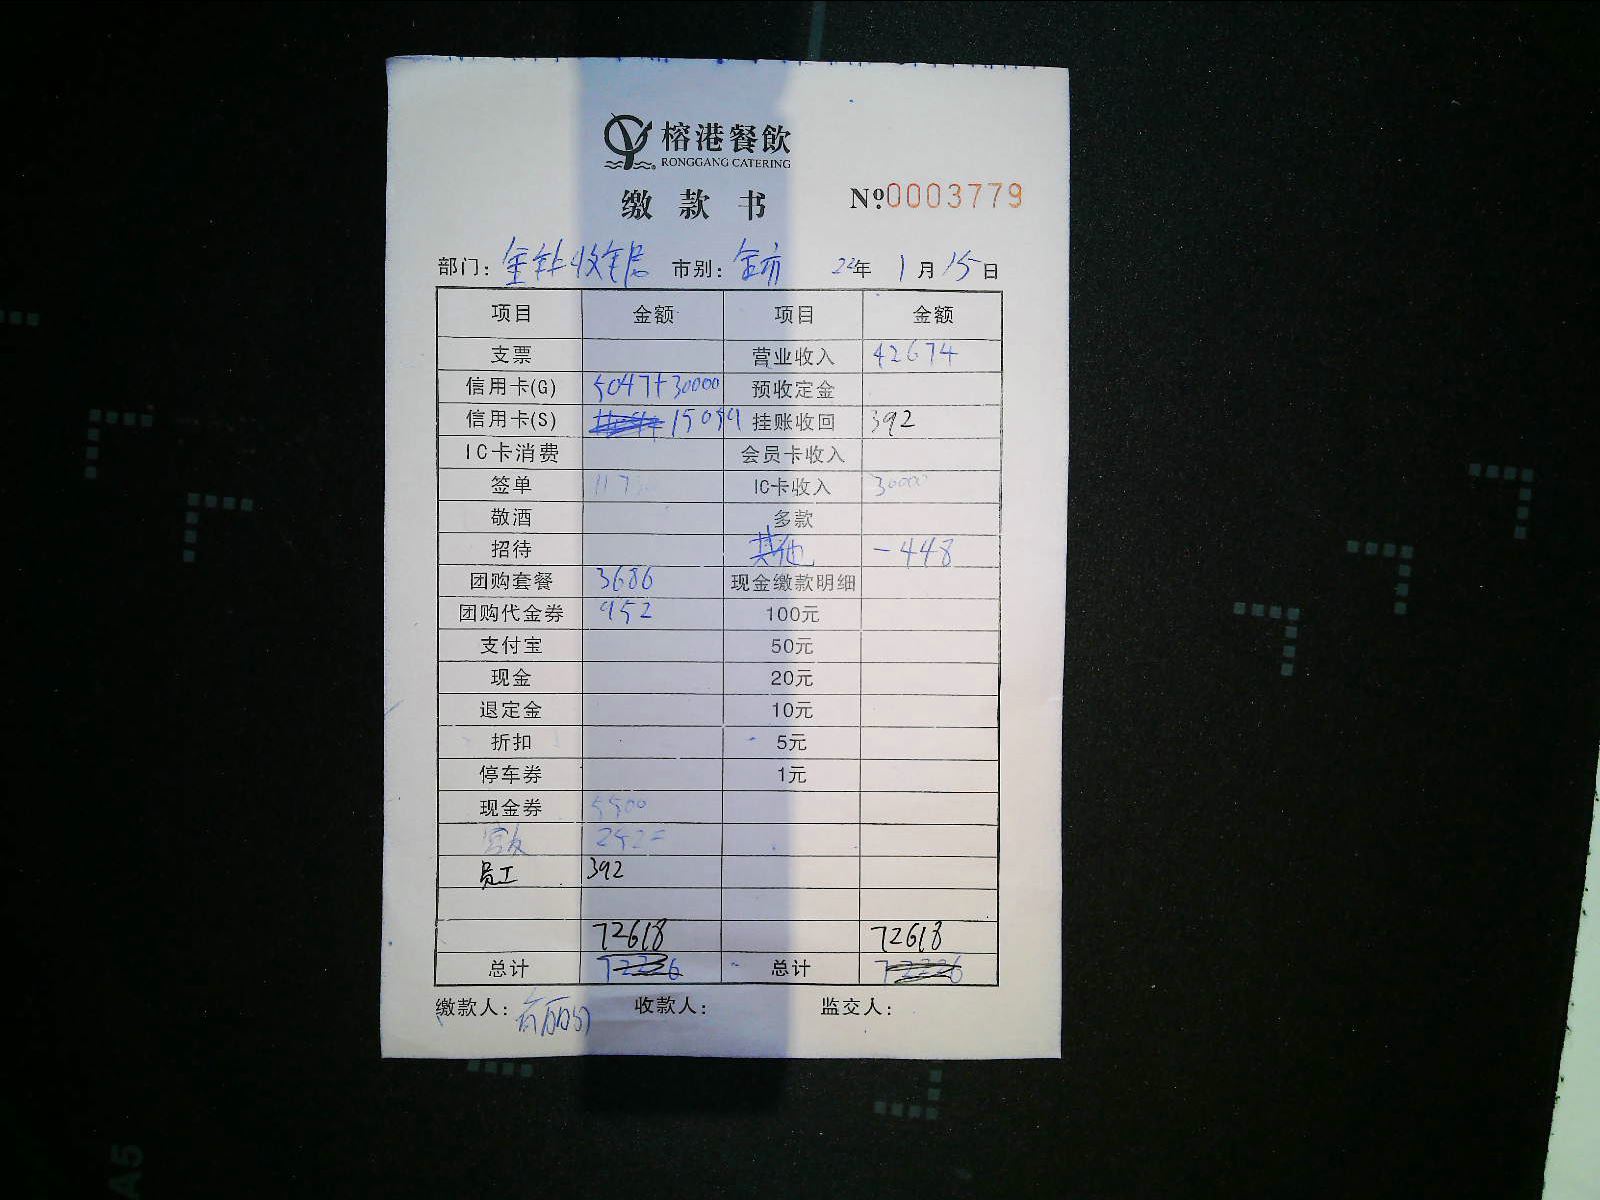 榕港餐飲
RONGGANG CATERING
缴款书 №0003779
部门： 金钻收银 市别：全市 22年 1月15日
项目 金额 项目 金额
支票 营业收入 42674
信用卡(G) 5047+30000 预收定金
信用卡(S) 15059 挂账收回 392
IC卡消费 会员卡收入
签单 IC卡收入 30000
敬酒 多款
招待 其他 -448
团购套餐 3686 现金缴款明细
团购代金券 952 100元
支付宝 50元
现金 20元
退定金 10元
折扣 5元
停车券 1元
现金券 5500
员工 392
72618 72618
总计 总计
缴款人： 收款人： 监交人：
A5